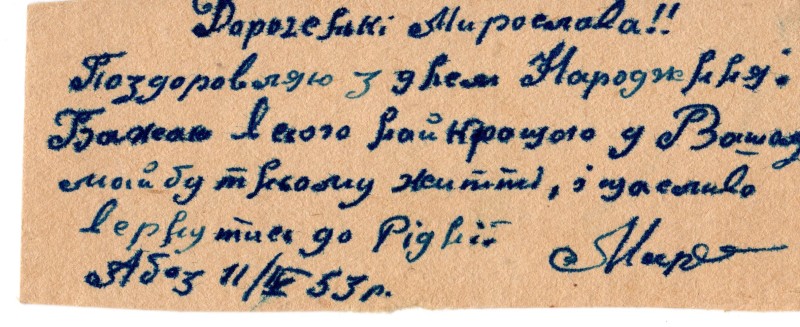 Дорогенькі Мирослава!!
Поздоровляю з днем Народження.
Бажаю всього найкращого у Вашому
майбутньому житті, і щасливо
вернутись до Рідні.
Абез 11/IV 53 р. Мир